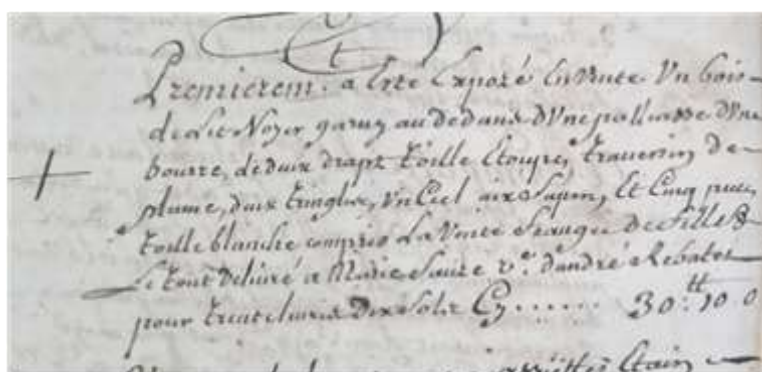 Premierem.t a Esté Exposé En vente Vn bois
de Lit Noyer garny au dedans d'Vne palliasse d'Vne
bourre, de deux draps toille Etoupe, traversin de
plume, deux tringles, Vn Ciel aix Sapin, Et Cinq pieces
toille blanche compris La Vnité franges de filles
Le tout deliuré a Marie Sauze v.e d'andré Rebatet
pour trente liures dix Solz Cy ...... 30:tt 10. 0
Etain